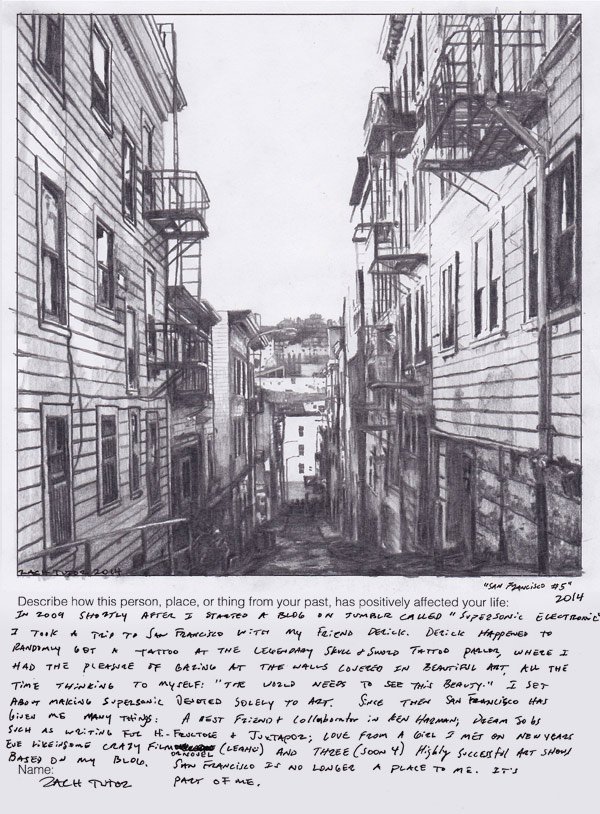 ZACH TUTOR 2014
"SAN FRANCISCO #5"
2014
Describe how this person, place, or thing from your past, has positively affected your life:
IN 2009 SHORTLY AFTER I STARTED A BLOG ON TUMBLR CALLED "SUPERSONIC ELECTRONIC"
I TOOK A TRIP TO SAN FRANCISCO WITH MY FRIEND DERICK. DERICK HAPPENED TO
RANDOMLY GET A TATTOO AT THE LEGENDARY SKULL & SWORD TATTOO PARLOR, WHERE I
HAD THE PLEASURE OF GAZING AT THE WALLS COVERED IN BEAUTIFUL ART, ALL THE
TIME THINKING TO MYSELF: "THE WORLD NEEDS TO SEE THIS BEAUTY." I SET
ABOUT MAKING SUPERSONIC DEVOTED SOLELY TO ART. SINCE THEN SAN FRANCISCO HAS
GIVEN ME MANY THINGS: A BEST FRIEND & COLLABORATOR IN KEN HARMAN, DREAM JOBS
SUCH AS WRITING FOR HI-FRUCTOSE & JUXTAPOZ, LOVE FROM A GIRL I MET ON NEW YEARS
EVE LIKE IN SOME CRAZY FILM OR NOVEL (LEAH♡) AND THREE (SOON 4) HIGHLY SUCCESSFUL ART SHOWS
BASED ON MY BLOG. SAN FRANCISCO IS NO LONGER A PLACE TO ME. IT'S
PART OF ME.
Name:
ZACH TUTOR